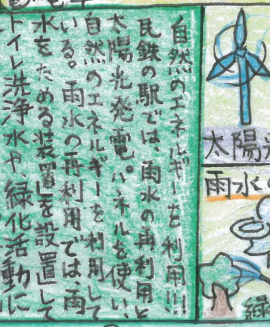 自然のエネルギーを利用!!!
民鉄の駅では、雨水の再利用と
太陽光発電パネルを使い
自然のエネルギーを利用して
いる。雨水の再利用では、雨
水をためる装置を設置して
トイレ洗浄水や緑化活動に
太陽
雨水の
緑